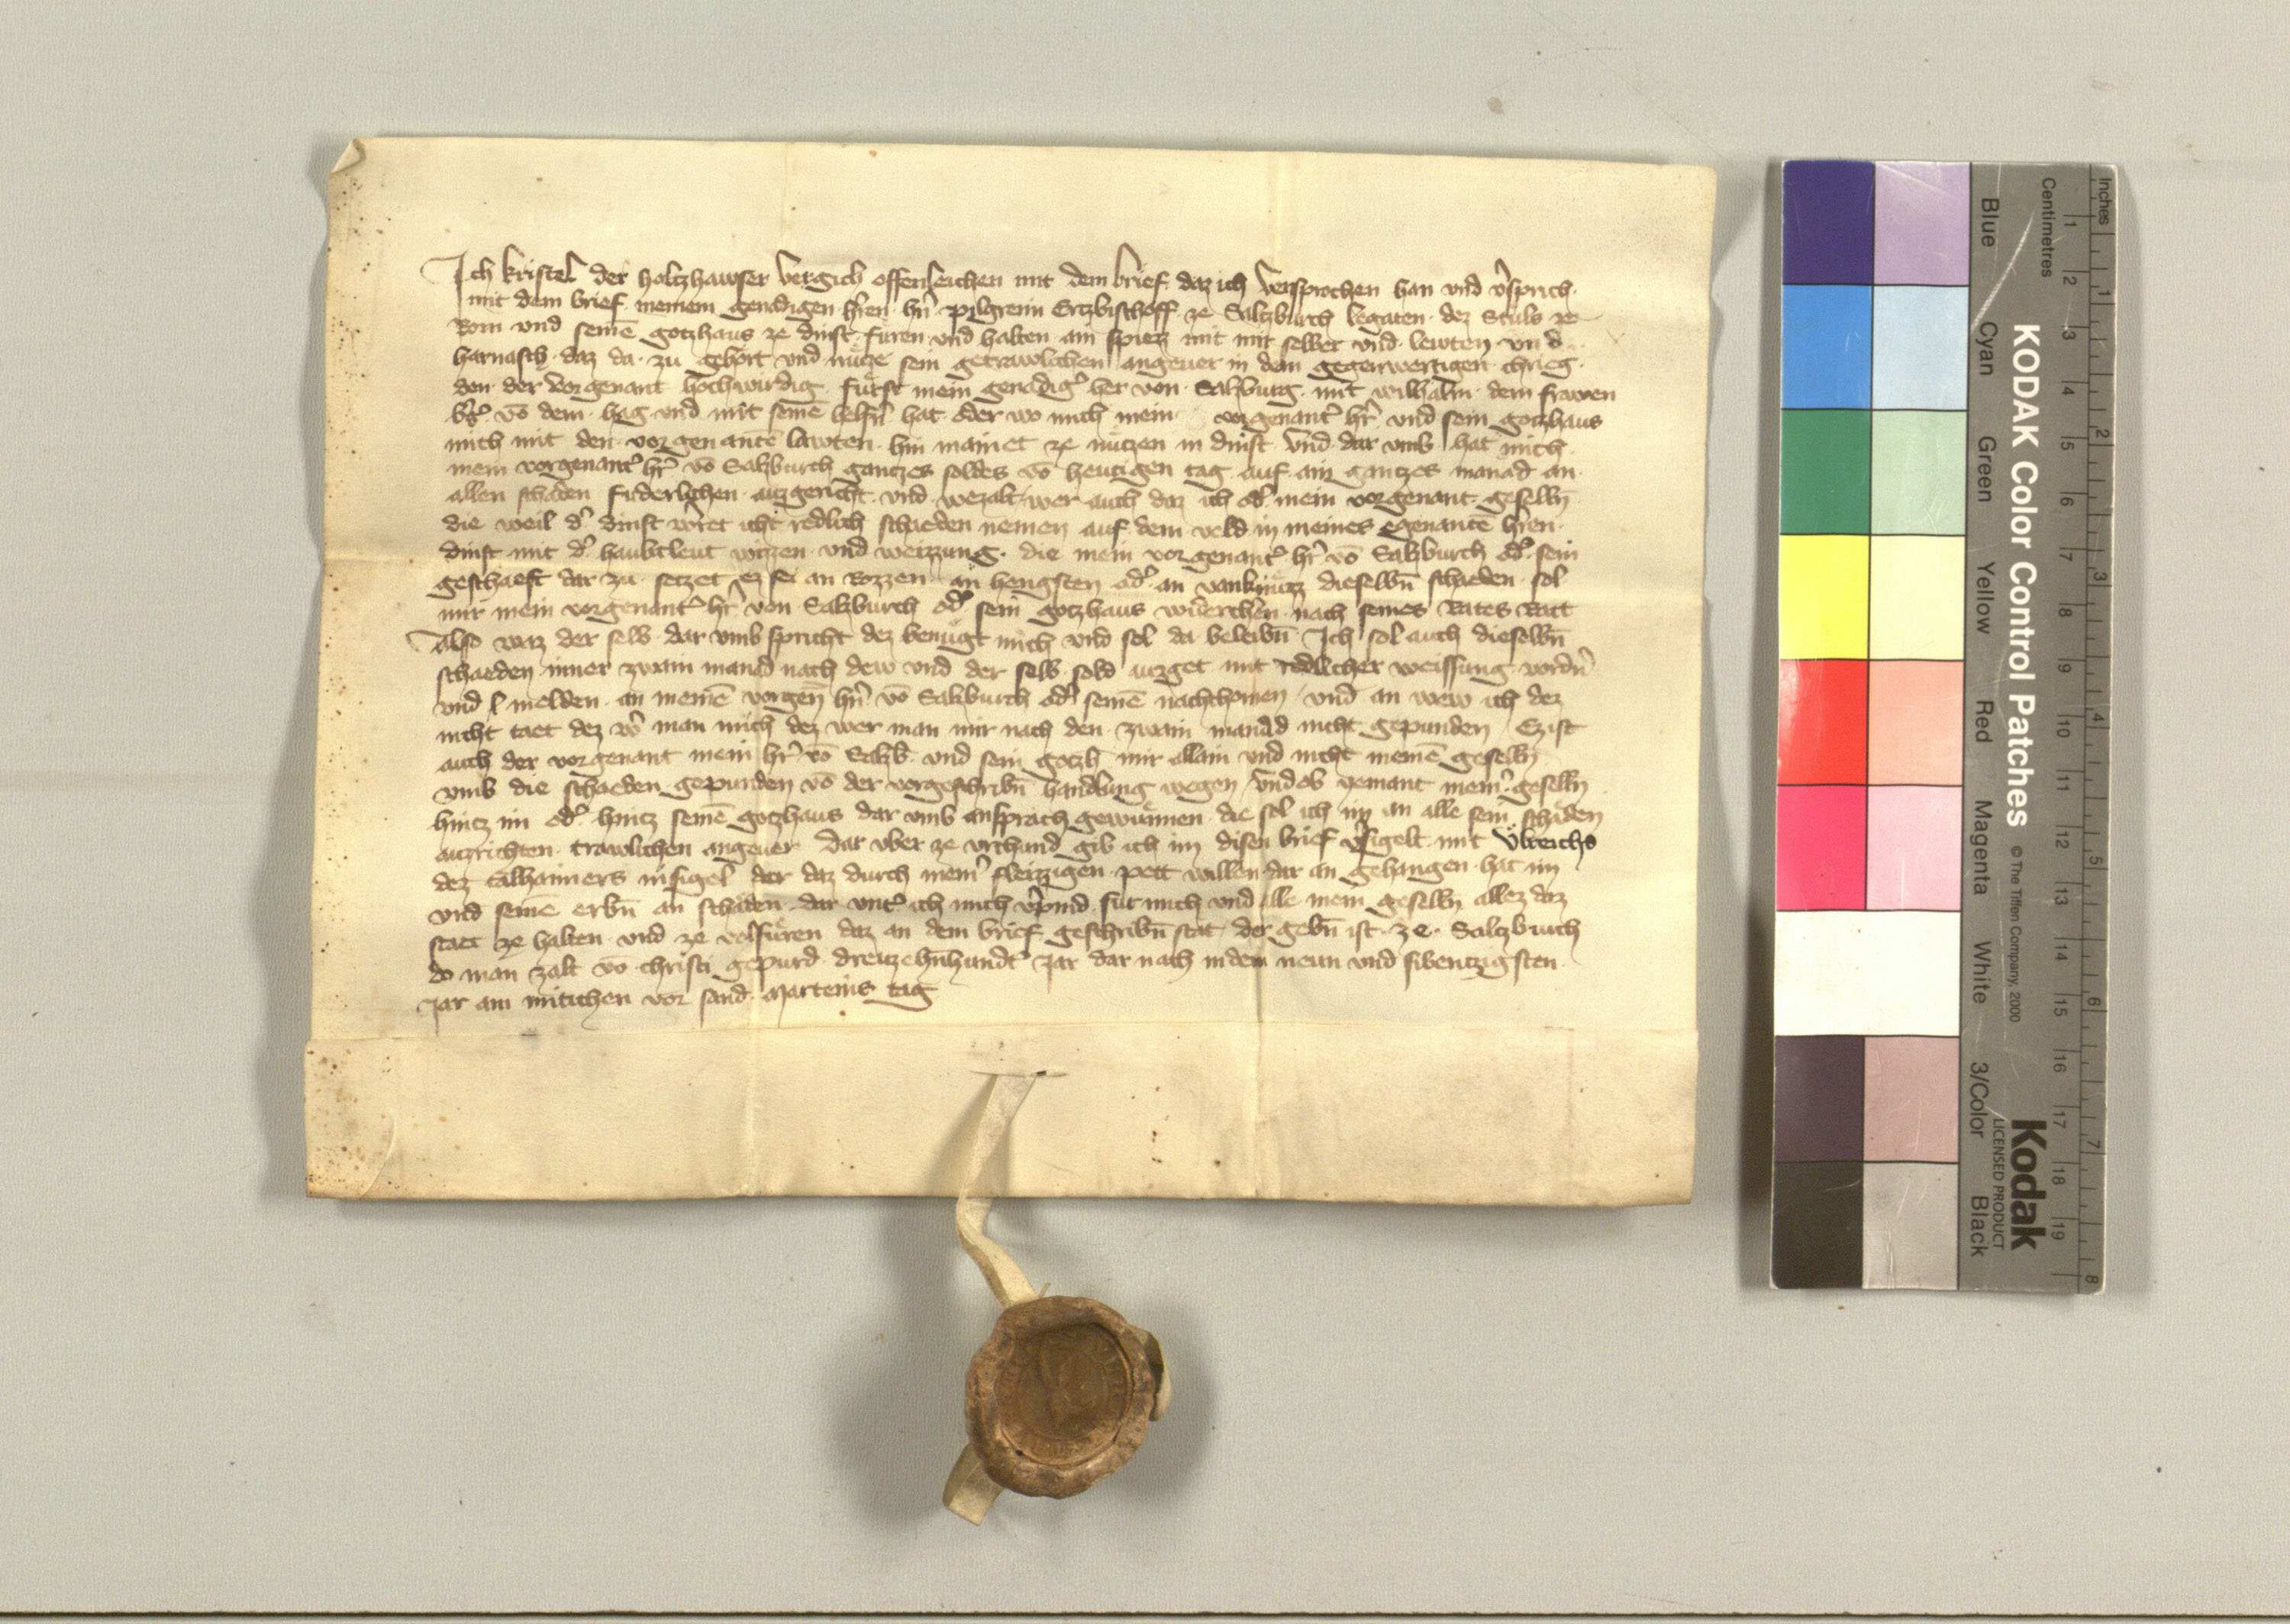 Ich kristel der holtzhawser vergich offenleichen mit dem brief daz ich versprochen han vnd v̾sprich
mit dem brief meinem genedigen h̾ren hn̾ pilgreim Ertzbischoff ze Saltzburch legaten dez Stuls ze
Rom vnd seinē gotzhaus ze dinst füren vnd halten ain spiezz mit mir selber vnd lewten vnd
harnasch daz da zu gehört vnd nütze sein getrawlichen angeuer in dem gegenwertigen chrieg
den der vorgenant hochwirdig fürst mein genedig̾ her von Salzburg mit wilhalm dem frawen
b̾g̾ vō dem hag vnd mit seinē helfn̾ hat oder wo mich mein vorgenant̾ hr̾ vnd sein gotzhaus
mich mit den vorgenantē lawten hin mainet ze nützen in dinst vnd dar vmb hat mich
mein vorgenant̾ hr̾ vō Salzburch gantzes soldes vō hewtigen tag auf ain gantzes manad an
allen schaden fuderlichen auzgericht vnd wezalt wer auch daz ich od̾ mein vorgenant geselln̄
die weil d̾ dinst w̾ret icht redlich schaeden nemen auf dem veld in meines egenantē h̾ren
dinst mit d̾ haubtleut wizzen vnd weizzung die mein vorgenant̾ hr̾ vō Salzburch od̾ sein
geschaeft dar zu setzet ez sei an Rozzen an hengsten od̾ an vanknüzz dieselbn̄ schaeden sol
mir mein vorgenant̾ hr̾ von Salzburch od̾ sein gotzhaus wid̾erchern nach seines Rates Ratt
Also waz der selb dar vmb spricht dez benügt mich vnd sol da beleibn̄ Ich sol auch dieselbn̄
schaeden inner zwain manad nach dew vnd der selb sold auzget mit redlicher weissung vordn̾
vnd melden an meinē vorgen̄ hn̾ vō Salzburch od̾ seinē nachchomen vnd an wew ich dez
nicht taet dez w̾ man mich dez wer man mir nach den zwain manad nicht gepunden Ez ist
auch der vorgenant mein hr̾ vō Salzb̄ vnd sein gotzh̄ mir allain vnd nicht meinē geselln̄
vmb die schaeden gepunden vō der vorgeschribn̄ handlung wegen vnd ob yemant mein̾ geselln̄
hintz im od̾ hintz seinē gotzhaus dar vmb ansprach gewünnen die sol ich im an alle sein schaden
auzrichten trawlichen angeuer Dar vber ze vrchund gib ich im disen brief v̾sigelt mit Ulreichs
dez talhaimers insigel der daz durch mein̾ fleizzigen pett willen dar an gehangen hat im
vnd seinē erbn̄ an schaden dar vnt̾ ich mich v̾pind für mich vnd alle mein geselln̄ allez daz
staet ze halten vnd ze volfüren daz an dem brief geschribn̄ stat der gebn̄ ist ze Saltzburch
do man zalt vō christi gepurd dreuzehn̄hundt̾ Jar dar nach in dem neun vnd sibentzigsten
Jar am mitichen vor sand Marteins tag
KODAK Color Control Patches
© The Tiffen Company, 2000
Kodak
LICENSED PRODUCT
Inches 1 2 3 4 5 6 7 8
Centimetres 1 2 3 4 5 6 7 8 9 10 11 12 13 14 15 16 17 18 19
Blue Cyan Green Yellow Red Magenta White 3/Color Black